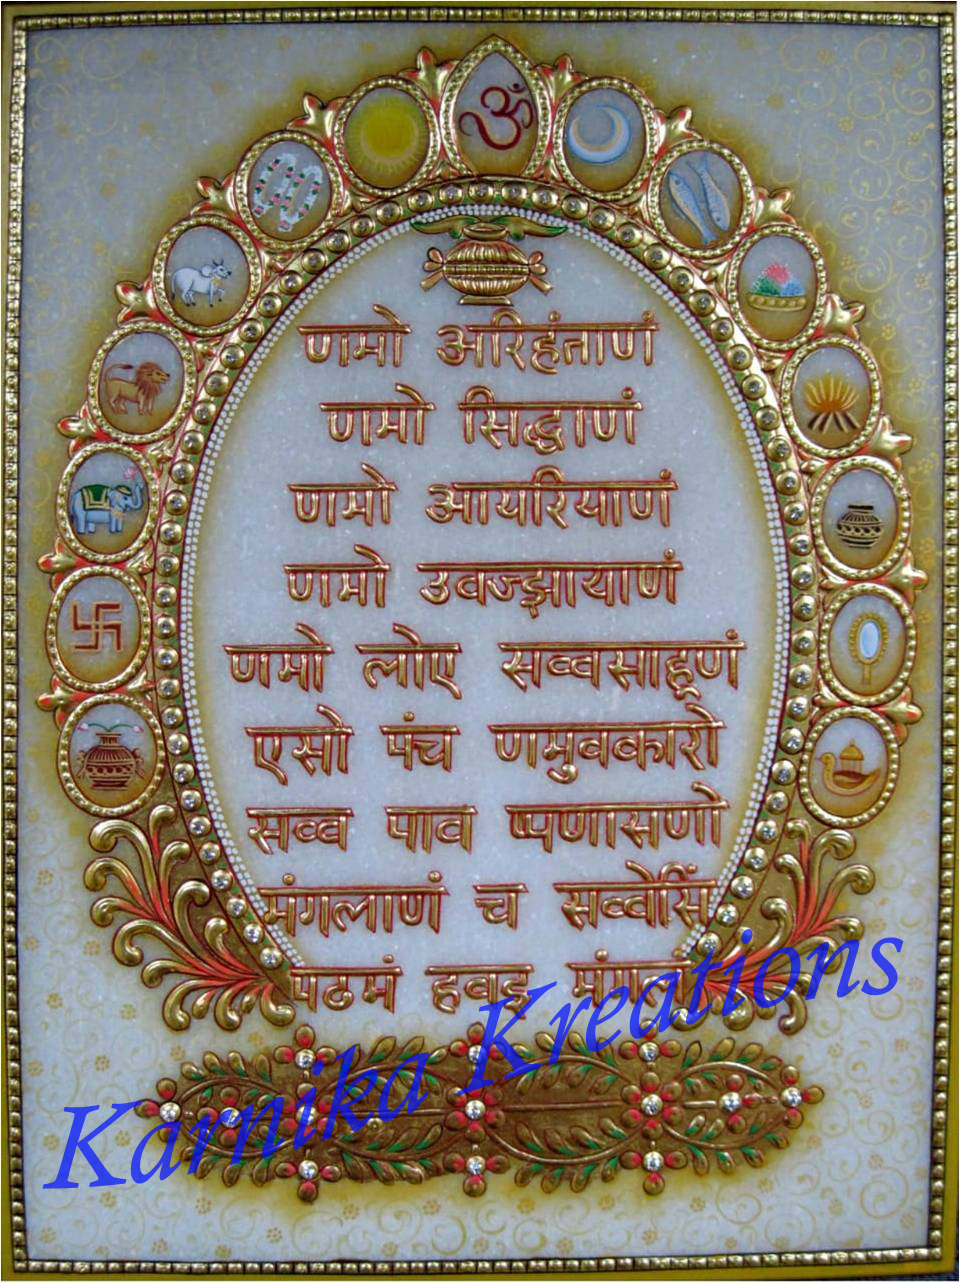 ॐ
णमो अरिहंताणं
णमो सिद्धाणं
णमो आयरियाणं
णमो उवज्झायाणं
णमो लोए सव्वसाहूणं
एसो पंच णमुवकारो
सव्व पाव प्पणासणो
मंगलाणं च सव्वेसिं
पढमं हवइ मंगलं
Karnika Kreations